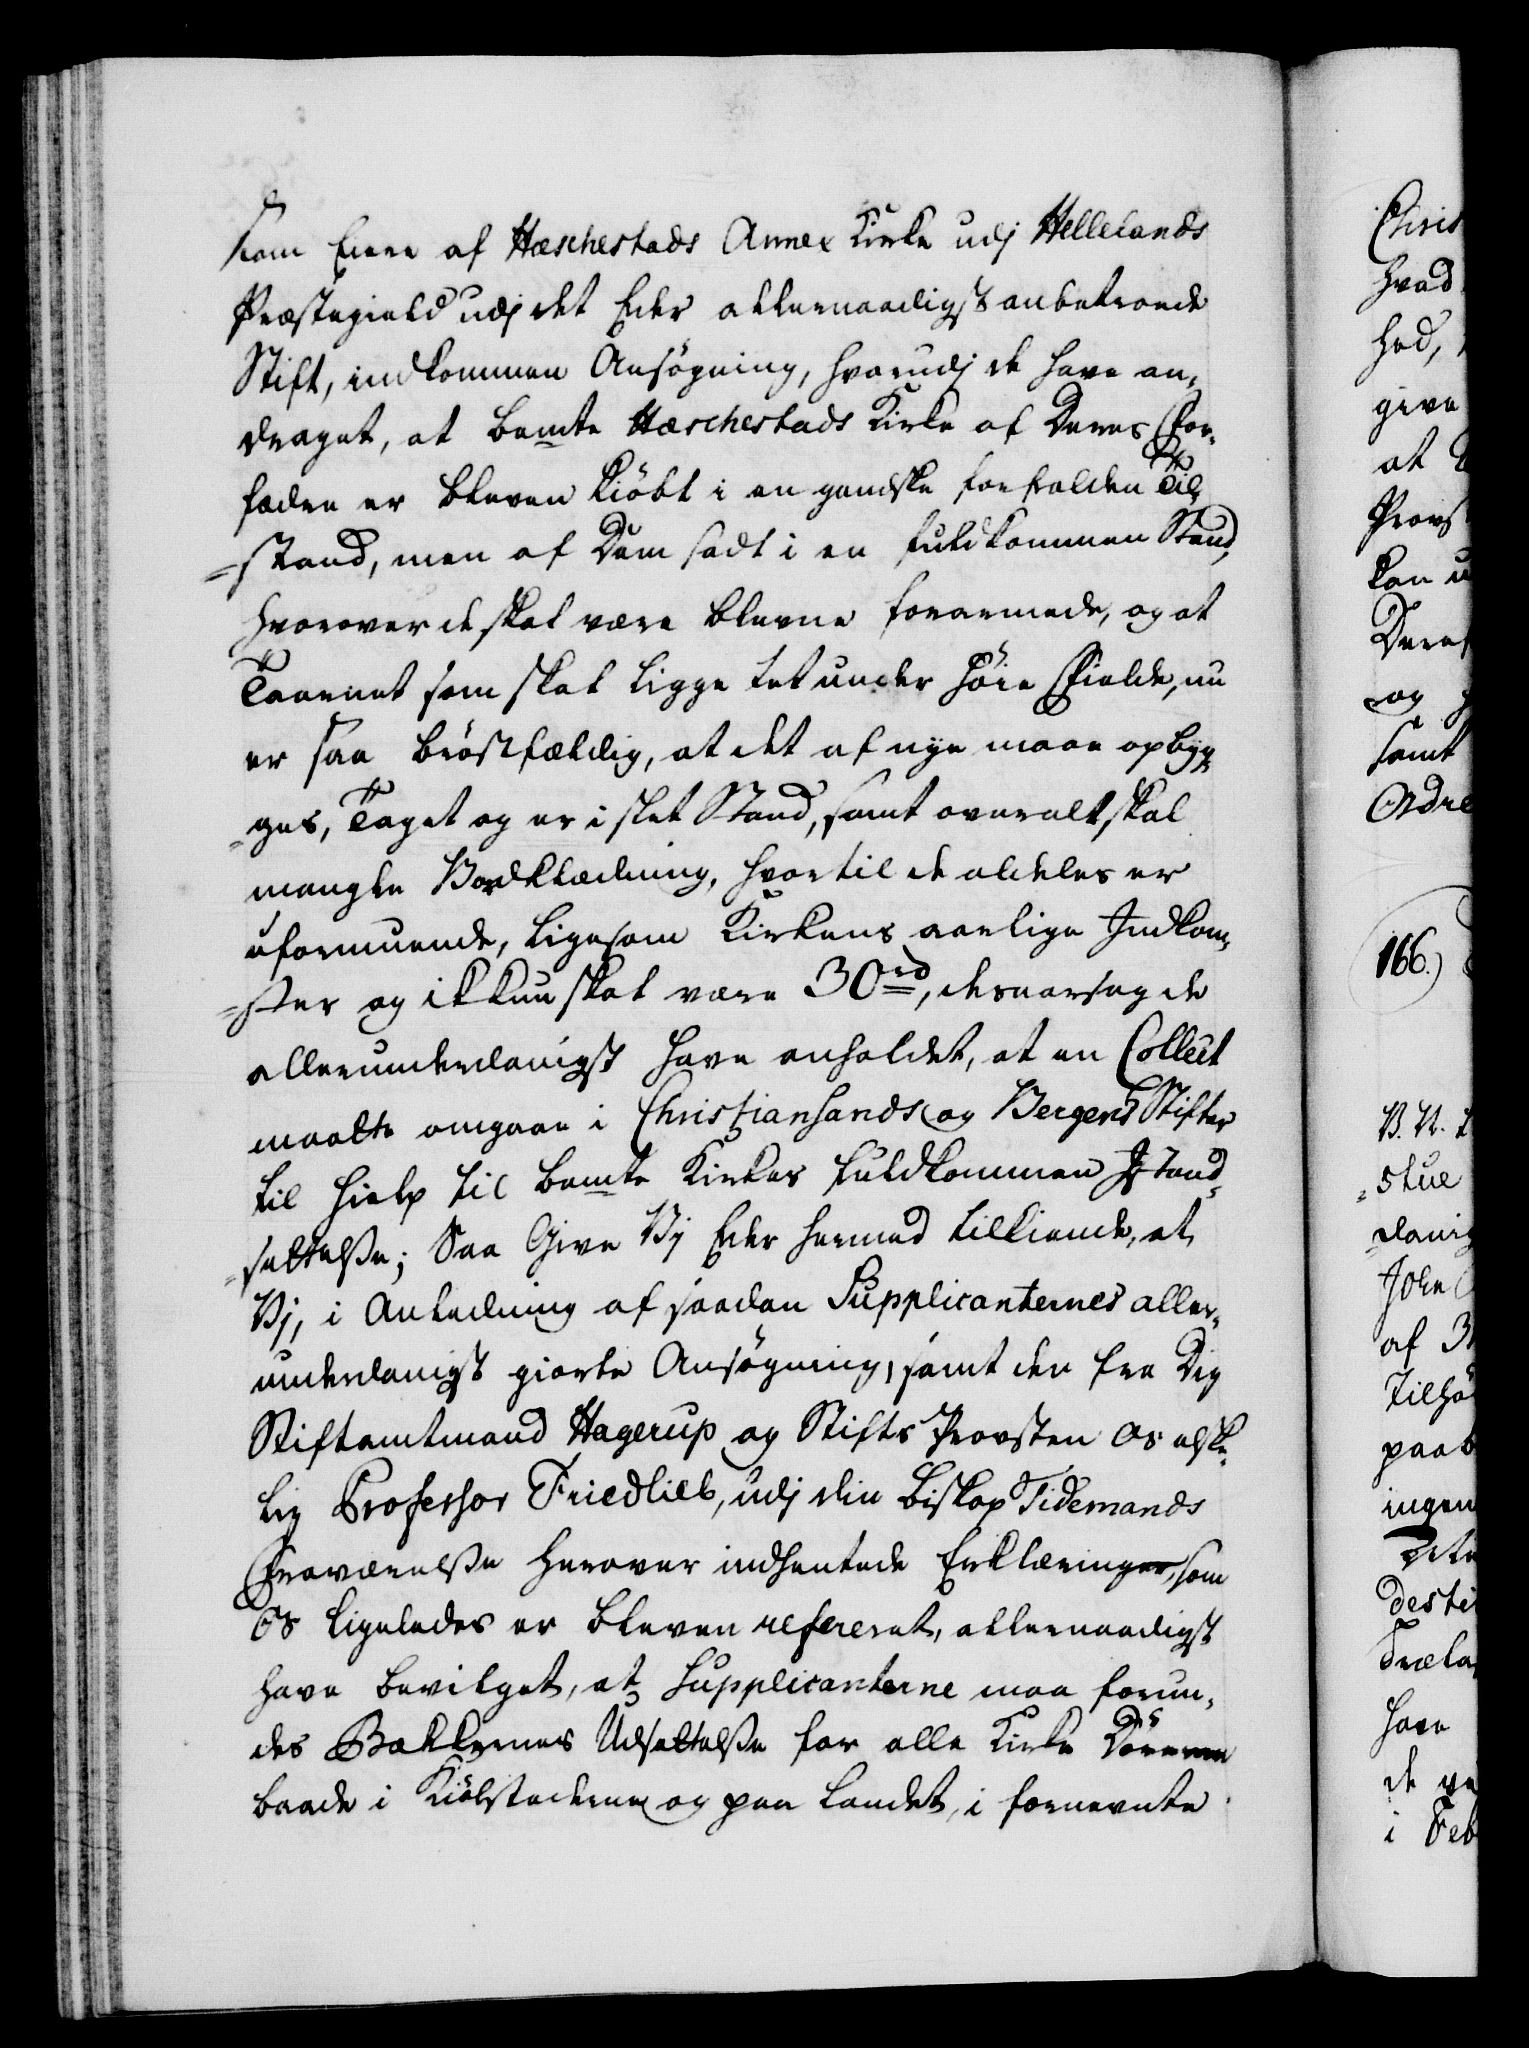 som Eiere af Hæschestads Annex Kirke udj Hellelands
Præstegield udj det Eder allernaadigst anbetroede
Stift, indkommen Ansøgning, hvorudj de have an-
draget, at bemte Hæschestads Kirke af Deres For-
fædre er bleven kiøbt i en gandske forfalden Til-
=stand, men af Dem sadt i en fuldkommen Stand,
hvorover de skal være blevne forarmede, og at
Taarnet som skal ligge tet under høie Fielde, nu
er saa brøstfældig, at det af nye maae opbyg-
=ges, Taget og er i slet Stand, samt overalt skal
mangle Bordklædning, hvortil de aldeles er
uformuende, ligesom Kirkens aarlige Indkom-
=ster og ikkun skal være 30rd, desaarsag de
allerunderdanigst have anholdet, at en Collect
maatte omgaae i Christiansands og Bergens Stifter
til Hielp til bemte Kirkes fuldkommen Istand-
=sættelse; Saa Give Vj Eder hermed tilkiende, at
Vj, i Anledning af saadan Supplicanternes aller-
underdanigst giorte Ansøgning, samt den fra Dig
Stiftamtmand Hagerup og Stifts Provsten Os elske-
lig Professor Friedlieb, udj din Biskop Tidemands
Fraværelse herover indhentede Erklæringer, som
Os ligeledes er bleven refereret, allernaadigst
have bevilget, at Supplicanterne maa forun-
des Bækkernes Udsættelse for alle Kirke Dørene
baade i Kiøbstæderne og paa Landet, i fornevnte
Chris
hvad
hed,
give
at
Provs
kan u
Deres
og
samt
Ordre
166.)
V. N.
=stue
=danig
John
af
Tilhø
paab
ingen
desti
Trela
have
de
i Feb